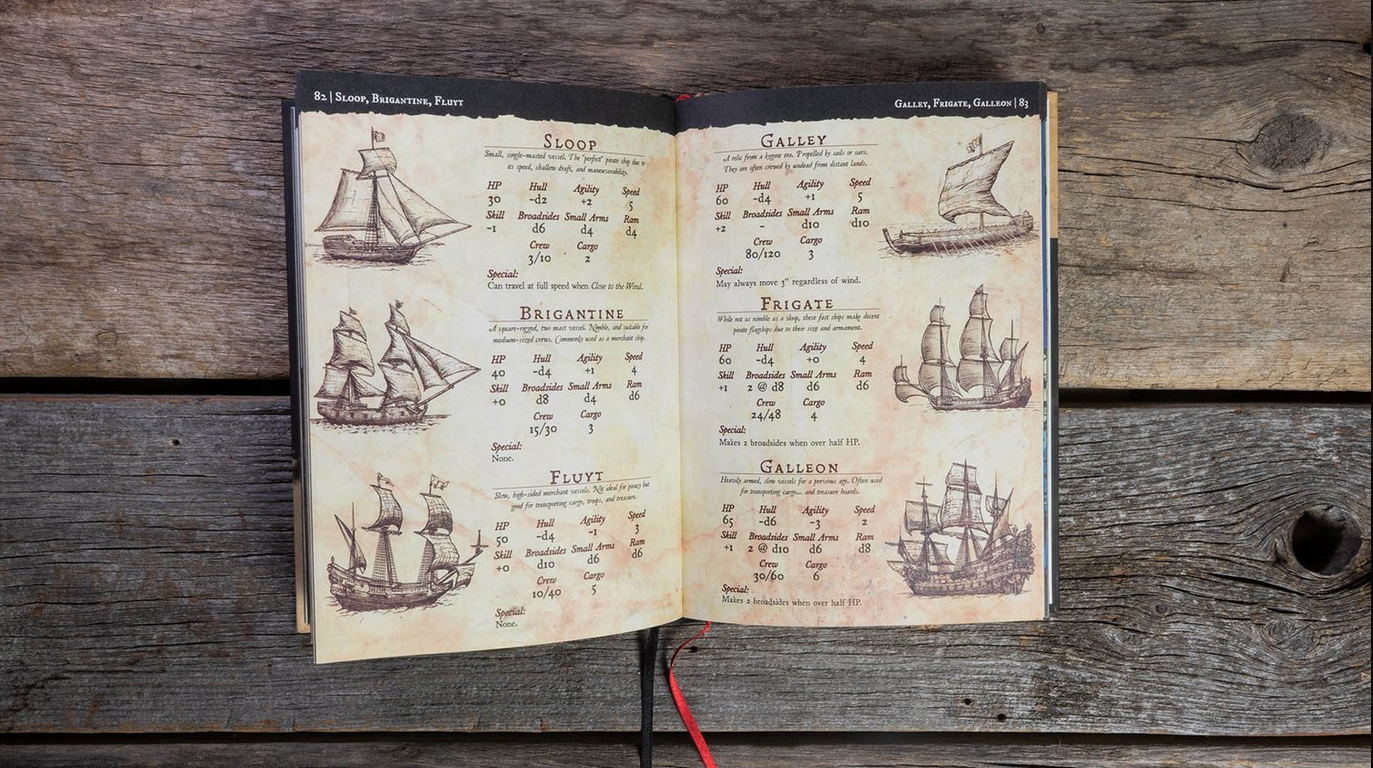 82 | Sloop, Brigantine, Fluyt
Sloop
Small, single-masted vessel. The "perfect" pirate ship due to
its speed, shallow draft, and maneuverability.
HP Hull Agility Speed
30 -d2 +2 5
Skill Broadsides Small Arms Ram
-1 d6 d4 d4
Crew Cargo
3/10 2
Special:
Can travel at full speed when Close to the Wind.
Brigantine
A square-rigged, two mast vessel. Nimble, and suitable for
medium-sized crews. Commonly used as a merchant ship.
HP Hull Agility Speed
40 -d4 +1 4
Skill Broadsides Small Arms Ram
+0 d8 d4 d6
Crew Cargo
15/30 3
Special:
None.
Fluyt
Slow, high-sided merchant vessels. Not ideal for piracy but
good for transporting cargo, troops, and treasure.
HP Hull Agility Speed
50 -d4 -1 3
Skill Broadsides Small Arms Ram
+0 d10 d6 d6
Crew Cargo
10/40 5
Special:
None.
Galley, Frigate, Galleon | 83
Galley
A relic from a bygone era. Propelled by sails or oars.
They are often crewed by undead from distant lands.
HP Hull Agility Speed
60 -d4 +1 5
Skill Broadsides Small Arms Ram
+2 - d10 d10
Crew Cargo
80/120 3
Special:
May always move 3" regardless of wind.
Frigate
While not as nimble as a sloop, these fast ships make decent
pirate flagships due to their size and armament.
HP Hull Agility Speed
60 -d4 +0 4
Skill Broadsides Small Arms Ram
+1 2 @ d8 d6 d6
Crew Cargo
24/48 4
Special:
Makes 2 broadsides when over half HP.
Galleon
Heavily armed, slow vessels for a previous age. Often used
for transporting cargo... and treasure hoards.
HP Hull Agility Speed
65 -d6 -3 2
Skill Broadsides Small Arms Ram
+1 2 @ d10 d6 d8
Crew Cargo
30/60 6
Special:
Makes 2 broadsides when over half HP.